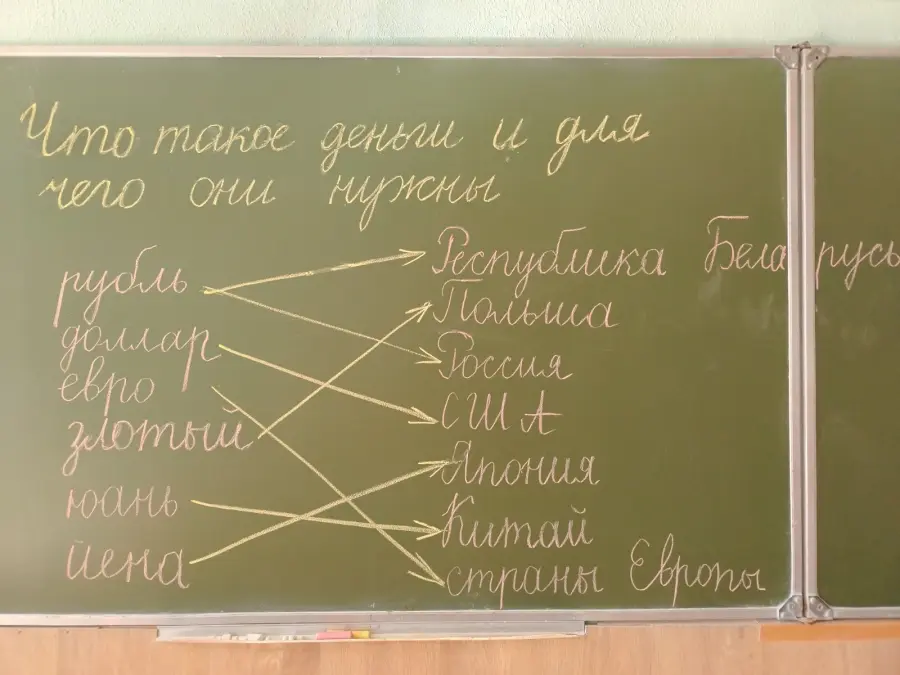 Что такое деньги и для
чего они нужны
рубль
доллар
евро
злотый
юань
йена
Республика Беларусь
Польша
Россия
США
Япония
Китай
страны Европы